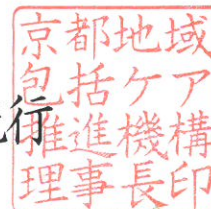 京都地域
包括ケア
推進機構
理事長印
行